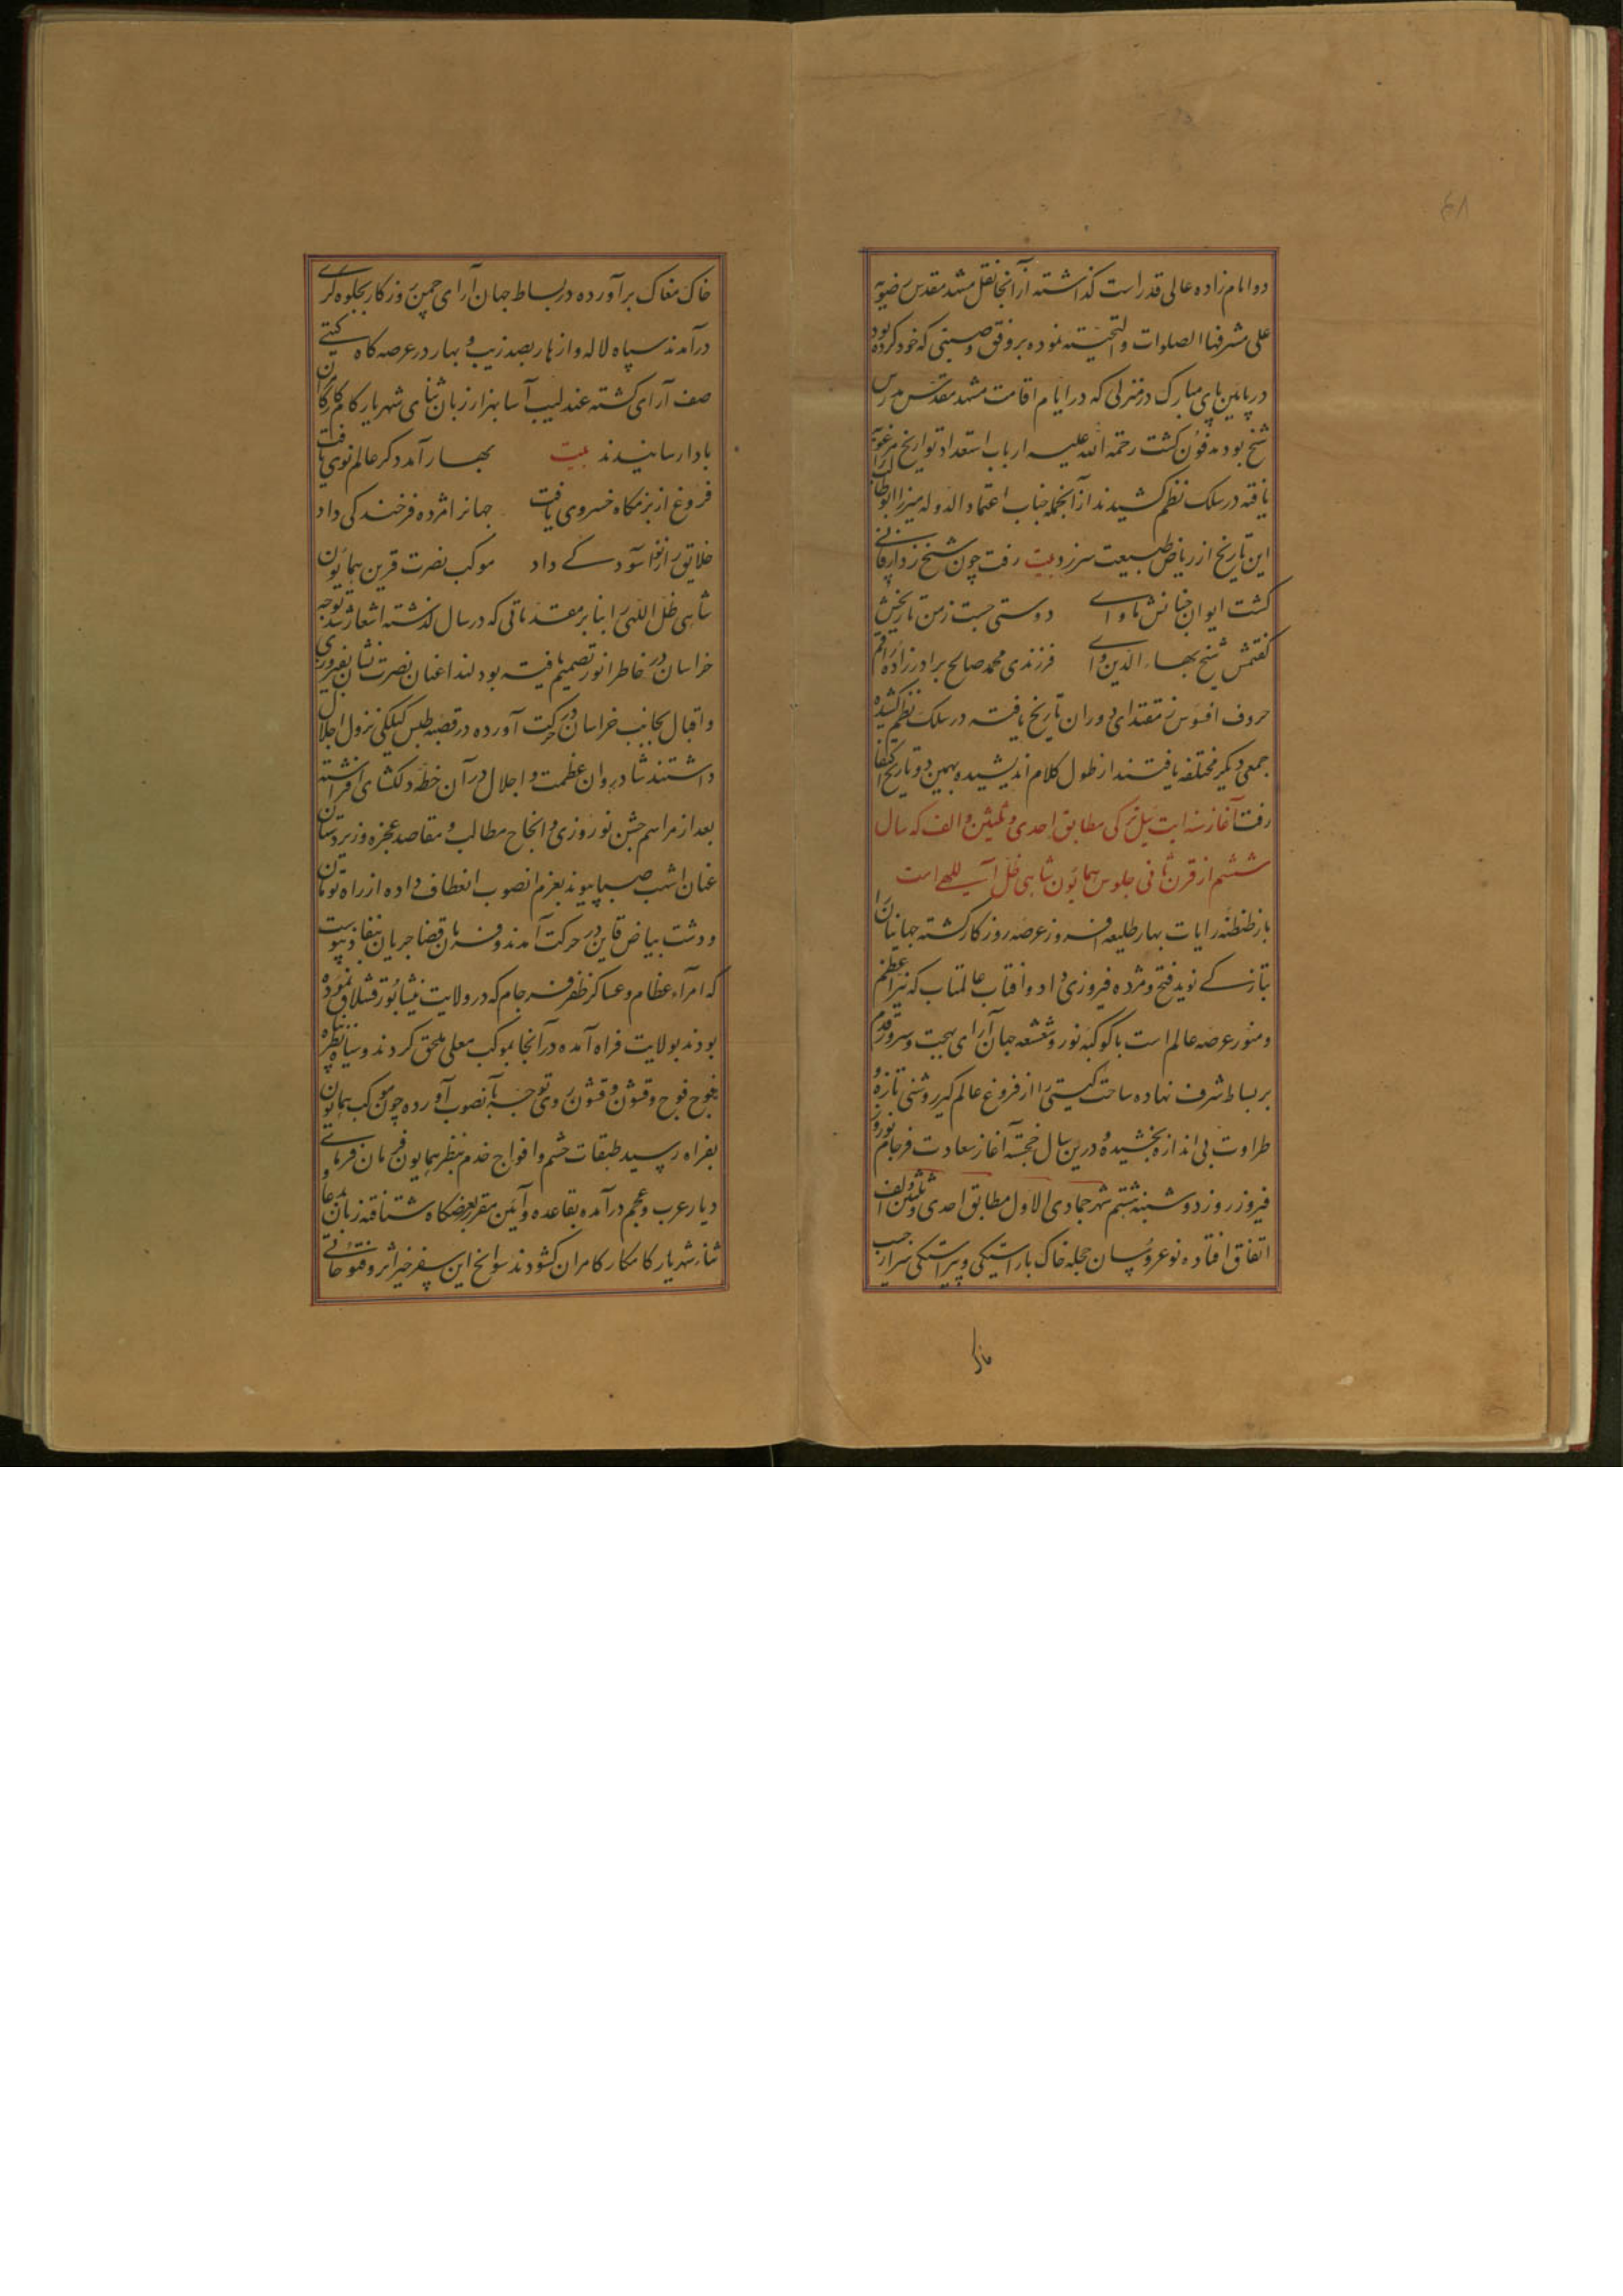 دو امام زاده عالی قدر است گذاشته از آنجا نقل مشهد مقدس رضویه
علی مشرفها الصلوات والتحیته نموده بر وفق وصیتی که خود کرده بود
در پایین پای مبارک در منزلی که در ایام اقامت مشهد مقدس مدرس
شیخ بود مدفون گشت رحمة الله علیه ارباب استعداد تواریخ مرغوبه
یافته در سلک نظم کشیدند از آنجمله جناب اعتماد الدوله میرزا ابوطالب
این تاریخ از ریاض طبیعت سرزد بیت رفت چون شیخ ز دار فانی
گشت ایوان جنانش ماوای دوستی جست ز من تاریخش
گفتمش شیخ بهاء الدین وای فرزندی محمد صالح برادرزاده راقم
حروف افسوس ز مقتدای دوران تاریخ یافته در سلک نظم کشیده
جمعی دیگر مختلفه یافتند از طول کلام اندیشیده بهمین دو تاریخ اکتفا
رفت آغاز سنه ایت ئیل ترکی مطابق احدی و ثلثین و الف که سال
ششم از قرن ثانی جلوس همایون شاهی ظل اللهی است
باز طنطنه رایات بهار طلیعه افروز عرصه روزگار گشته جهانیان را
بتازگی نوید فتح و مژده فیروزی داد و افتاب عالمتاب که نیر اعظم
و منور عرصه عالم است با کوکبه نور و شعشعه جهان آرای بهجت و سرور قدم
بر بساط شرف نهاده ساحت گیتی را از فروغ عالم گیر روشنی تازه و
طراوت بی اندازه بخشیده و درین سال خجسته آغاز سعادت فرجام نوروز
فیروز روز دوشنبه هشتم شهر جمادی الاول مطابق احدی و ثلثین و الف
اتفاق افتاده نوعروسان حجله خاک باراستیکی و پیراستیکی سر از جیب
خاک
خاک مغاک برآورده در بساط جهان آرای چمن روزگار بجلوه گری
درآمدند سپاه لاله و ازهار بصد زیب و بهار در عرصه گاه گیتی
صف آرای گشته عندلیب آسا بهزار زبان ثنای شهریار کامکار کامران
بادا رسانیدند بیت بهار آمد دگر عالم نوی یافت
فروغ از بزمگاه خسروی یافت جهانرا مژده فرخندگی داد
خلایق را نوا آسودگی داد موکب نصرت قرین همایون
شاهی ظل اللهی را بنا بر مقدماتی که در سال گذشته اشعار شد توجه
خراسان در خاطر انور تصمیم یافته بود لهذا عنان نصرت نشان بفیروزی
و اقبال بجانب خراسان در حرکت آورده در قصبه طبس گیلکی نزول اجلال
داشتند شادروان عظمت و اجلال در آن خطه دلگشای افراشته
بعد از مراسم جشن نوروزی و انجاح مطالب و مقاصد عجزه و زیردستان
عنان اشهب صبا پیوند بعزم انصوب انعطاف داده از راه تون
و دشت بیاض قاین در حرکت آمدند و فرمان قضا جریان بنفاذ پیوست
که امرآء عظام و عساکر ظفر فرجام که در ولایت نیشابور قشلاق نموده
بودند بولایت فراه آمده در آنجا بموکب معلی ملحق گردند و سپاه نظر پناه
فوج فوج و قشون قشون روی توجه بآنصوب آورده چون موکب همایون
بفراه رسید طبقات حشم و افواج خدم بنظر همایون فرمان فرمای
دیار عرب و عجم درآمده بقاعده و آئین مقرر بعرضگاه شتافته زبان بدعا و
ثناء شهریار کامکار کامران گشودند سوانح این سفر خیر اثر و فتوحاتی